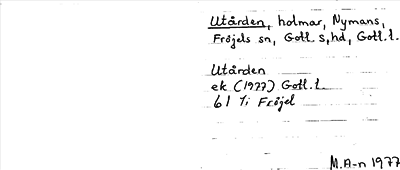 Utården, holmar, Nymans,
Fröjels sn, Gotl. s, hd, Gotl. l.
Utården
ek (1977) Gotl. l.
61 7i Fröjel
M.A-n 1977